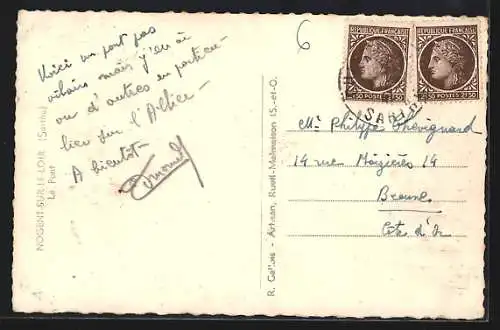 Voici un port pas
vilain mais j'en ai
vu d'autres en particu-
lier sur l'Allier
A bientôt
6
REPUBLIQUE FRANÇAISE
REPUBLIQUE FRANÇAISE
POSTES 2F50
POSTES 2F50
SARTHE
Mr Philippe Chevignard
14 rue Mozières 14
Beaune
Côte d'Or
NOGENT-SUR-LE-LOIR (Sarthe)
Le Pont
R. Gallois - Artisan, Rueil-Malmaison (S.-et-O.